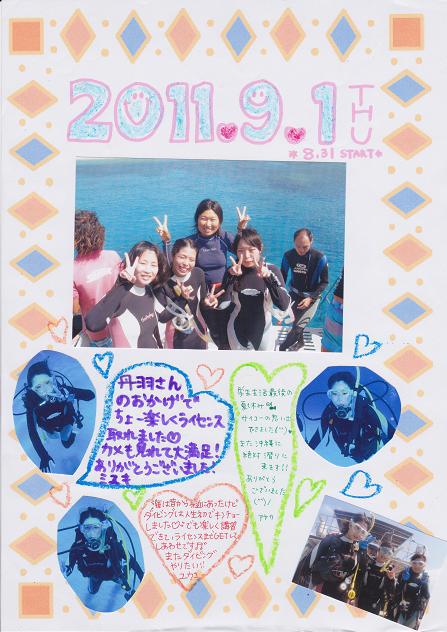 2011.9.1 THU
* 8.31 START *
丹羽さん
のおかげで
ちょー楽しくライセンス
取れました♡
カメも見れて大満足!
ありがとうございました!
ミズキ
学生生活最後の
夏休み
サイコーの思い出
できました(^^)
また沖縄に
絶対潜りに
来ます!!
ありがとう
ございました
(^^)/
海は昔から
ダイビングは人生初でキンチョー
しました でも楽しく講習
できてライセンスまでGETして
しあわせです
またダイビング
やりたい!!
ユカコ